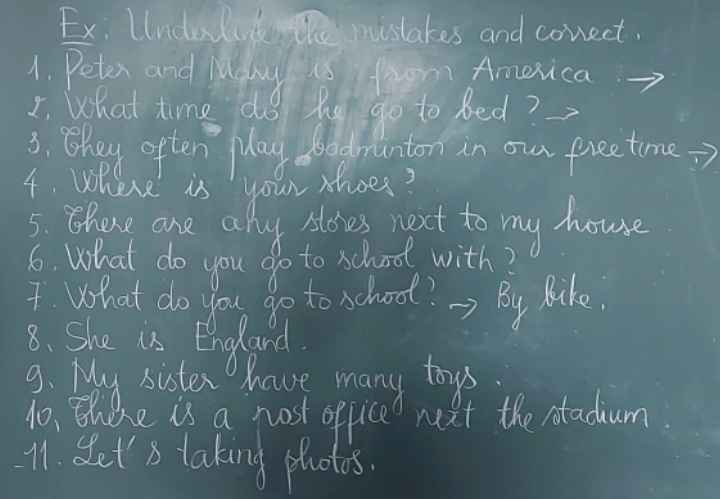 Ex: Underline the mistakes and correct.
1. Peter and Mary is from America : →
2. What time do he go to bed ? →
3. They often play badminton in our free time. →
4. Where is your shoes?
5. There are any stores next to my house
6. What do you go to school with?
7. What do you go to school? → By bike.
8. She is England.
9. My sister have many toys.
10. There is a post office next the stadium
11. Let's taking photos.